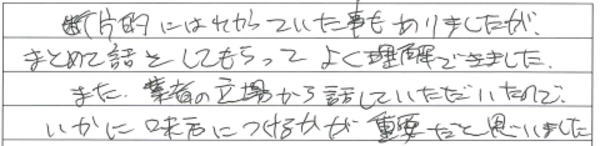 断片的にはわかっていた事もありましたが、
まとめて話をしてもらってよく理解できました。
また、業者の立場から話していただいたので、
いかに味方につけるかが重要だと思いました